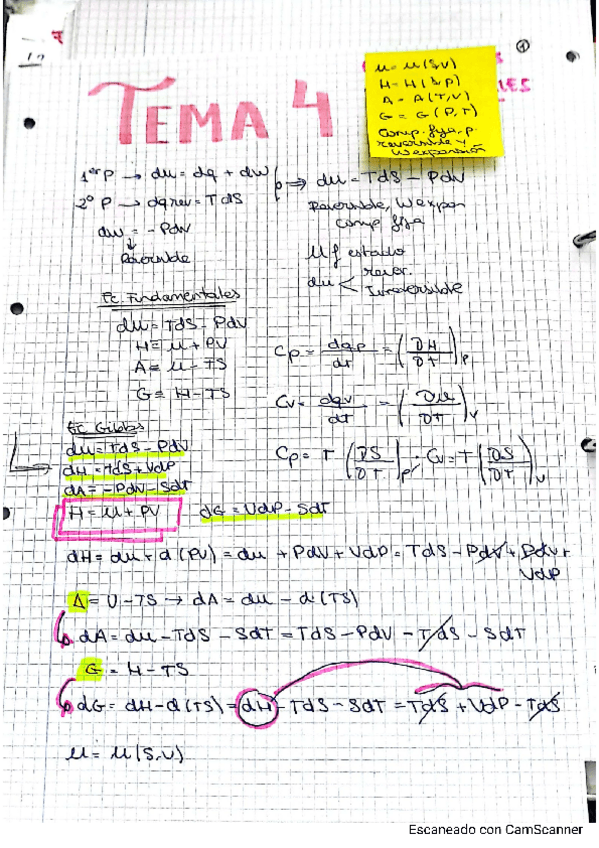 ①
u = u(S,V)
H = H(S,P)
A = A(T,V)
G = G(P,T)
Comp. fija, p.
reversible y
Wexpansión
TEMA 4
1er P → du = dq + dw
2º P → dqrev = TdS
⇒ du = TdS - PdV
dw = - PdV
Reversible
Reversible, Wexpan
comp fija
U f estado
du < rever.
Irreversible
Ec. Fundamentales
du = TdS - PdV
H = u + PV
A = u - TS
G = H - TS
Cp = dqp/dT = (DH/DT)P
Cv = dqv/dT = (Du/DT)V
Cp = T (DS/DT)P · Cv = T (DS/DT)V
Ec Gibbs
du = TdS - PdV
dH = TdS + VdP
dA = - PdV - SdT
H = u + PV
dG = VdP - SdT
dH = du + d(PV) = du + PdV + VdP = TdS - PdV + PdV +
VdP
A = U - TS → dA = du - d(TS)
dA = du - TdS - SdT = TdS - PdV - TdS - SdT
G = H - TS
dG = dH - d(TS) = dH - TdS - SdT = TdS + VdP - TdS
u = u(S,V)
Escaneado con CamScanner